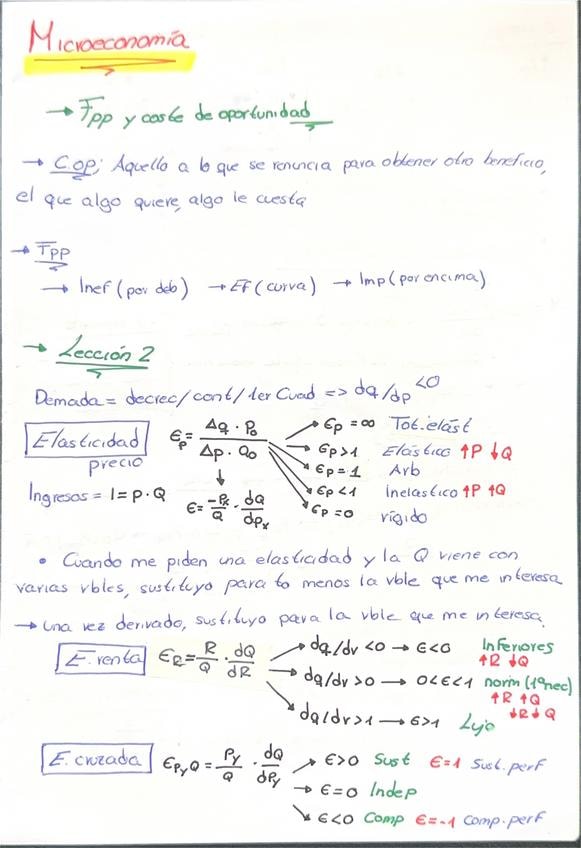 Microeconomía
→ Fpp y coste de oportunidad
→ Cop; Aquello a lo que se renuncia para obtener otro beneficio,
el que algo quiere, algo le cuesta
→ Fpp
→ Inef (por deb) → EF (curva) → Imp (por encima)
→ Lección 2
Demada = decrec/cont/1er Cuad => dq/dp <0
Elasticidad precio
Ep = Δq · Po / Δp · Qo
→ Ep = ∞ Tot. elást
→ Ep > 1 Elástico ↑P ↓Q
→ Ep = 1 Arb
→ Ep < 1 inelastico ↑P ↑Q
→ Ep = 0 rígido
Ingresos = I = p · Q
↓
E = -Px/Q · dQ/dpx
• Cuando me piden una elasticidad y la Q viene con
varias vbles, sustituyo para to menos la vble que me interesa
→ una vez derivado, sustituyo para la vble que me interesa.
E. renta ER = R/Q · dQ/dR
→ dq/dr <0 → E<0 Inferiores ↑R ↓Q
→ dq/dr >0 → 0<E<1 norm (1ºnec) ↑R ↑Q
→ dq/dr >1 → E>1 Lujo ↓R ↓Q
E. cruzada EPyQ = Py/Q · dQ/dPy
→ E>0 Sust E=1 Sust. perf
→ E=0 Indep
→ E<0 Comp E=-1 Comp. perf